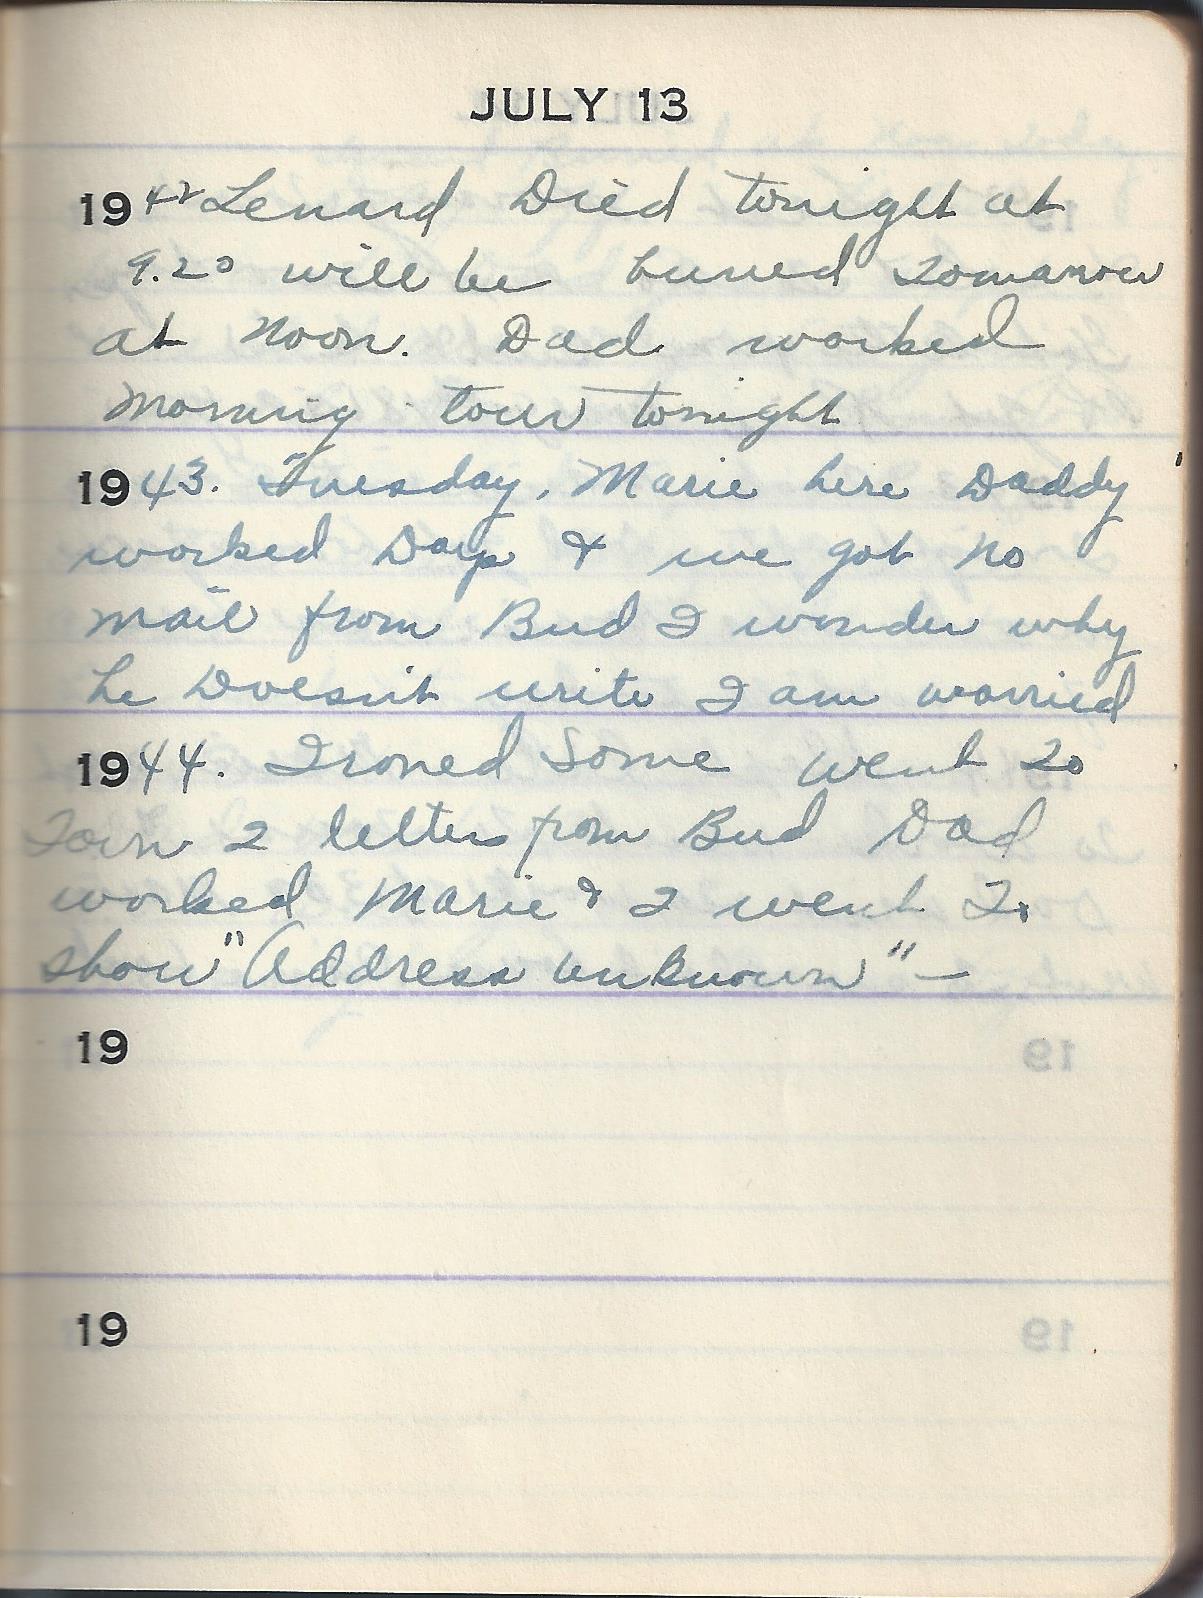 JULY 13
1942 Lenard Died tonight at
9.20 will be buried Tomarrow
at Noon. Dad worked
Morning tour tonight
1943. Tuesday, Marie here Daddy
worked Days & we got no
mail from Bud I wonder why
he Doesn't write I am worried
1944. Ironed Some went To
Town 2 letters from Bud Dad
worked Marie & I went To
show "Address unknown" —
19
19